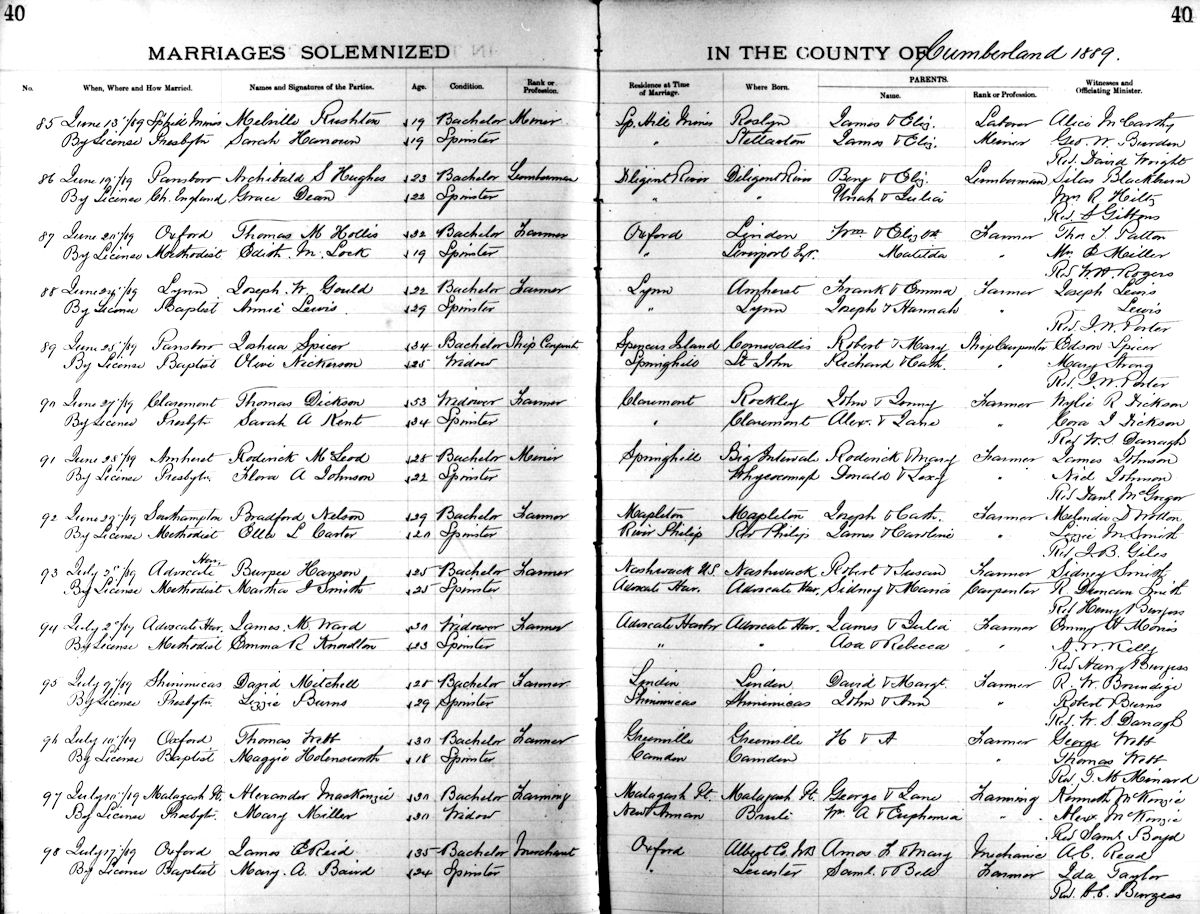 40
40
MARRIAGES SOLEMNIZED
IN THE COUNTY OF Cumberland 1889.
No. When, Where and How Married. Names and Signatures of the Parties. Age. Condition. Rank or Profession. Residence at Time of Marriage. Where Born. PARENTS. Name. Rank or Profession. Witnesses and Officiating Minister.
85 June 13 Mines Melville Rushton 19 Bachelor Miner Sp. Hill Mines Roslyn James & Eliz. Laborer Alice McCarthy
By License Presbytn Sarah 19 Spinster " Stellarton James & Eliz. Miner Geo. W. Burden
Rev. David Wright
86 June 19 Parrsboro Archibald S Hughes 23 Bachelor Lumberman Diligent River Diligent River Benj & Eliz. Lumberman Silas Blackburn
By License Ch. England Grace Dean 22 Spinster " " Uriah & Julia
Rev. S Gibbons
87 June Oxford Thomas M Hollis 32 Bachelor Farmer Oxford Linden Wm & Farmer Thos.
By License Methodist Edith M. Lock 19 Spinster " Liverpool Matilda " Miller
Rev. Rogers
88 June Lynn Joseph W. Gould 22 Bachelor Farmer Lynn Amherst Frank & Emma Farmer Joseph Lewis
By License Baptist Annie Lewis 29 Spinster " Lynn Joseph & Hannah " Lewis
Rev. J. W. Porter
89 June Joshua Spicer 34 Bachelor Ship Carpent Spencers Island Cornwallis Robert & Mary Ship Carpenter Edson Spicer
By License Baptist Olive Nickerson 25 Widow Springhill St John Richard & Cath. " Mary Strong
Rev. J. W. Porter
90 June 27 Claremont Thomas Dickson 53 Widower Farmer Claremont Rockley John & Farmer Wylie R Dickson
By License Presbytn Sarah A Kent 34 Spinster " Claremont Alex. & Jane " Cora Dickson
Rev W. S. Danagh
91 June Amherst Roderick McLeod 28 Bachelor Miner Springhill Big Interval Roderick & Mary Farmer James Johnson
By License Presbytn Flora A Johnson 22 Spinster Donald & Lexy " Johnson
Rev. Danl. McGregor
92 June Southampton Bradford Nelson 29 Bachelor Farmer Mapleton Mapleton Joseph & Cath. Farmer
By License Methodist Ella L Carter 20 Spinster River Philip Rvr Philip James & Caroline " Lizzie M Smith
Rev. J. B. Giles
93 July 2 Advocate Har Burpee Hanson 25 Bachelor Farmer Nashwaak Robert & Susan Farmer Sidney Smith
By License Methodist Martha J Smith 25 Spinster Advocate Har. Advocate Har. Sidney & Maria Carpenter R. Duncan Smith
Rev Henry Burgess
94 July 2 Advocate Har. James M Ward 30 Widower Farmer Advocate Harbor Advocate Har. James & Julia Farmer
By License Methodist Emma R Knowlton 23 Spinster " " Asa & Rebecca " Kelly
Rev Harry Burgess
95 July 9 Shinimicas David Mitchell 28 Bachelor Farmer Linden Linden David & Margt. Farmer R. W. Brundige
By License Presbytn. Lizzie Burns 29 Spinster Shinimicas Shinimicas John & Ann " Robert Burns
Rev. W. S Danagh
96 July 10 Oxford Thomas Webb 30 Bachelor Farmer Greenville Greenville H & A Farmer George Webb
By License Baptist Maggie 18 Spinster Camden Camden " Thomas Webb
97 July Malagash Pt. Alexander MacKenzie 30 Bachelor Farming Malagash Pt. Malagash Pt. George & Jane Farming Kenneth McKenzie
By License Presbytn. Mary Miller 30 Widow New Annan Brule Wm. A & Euphemia " Alexr McKenzie
Rev Saml. Boyd
98 July 17 Oxford James Reid 35 Bachelor Merchant Oxford Albert Co. NB Amos & Mary Mechanic A. C. Read
By License Baptist Mary. A. Baird 24 Spinster " Leicester Saml. & Bell Farmer Ida Taylor
Rev. H. C. Burgess